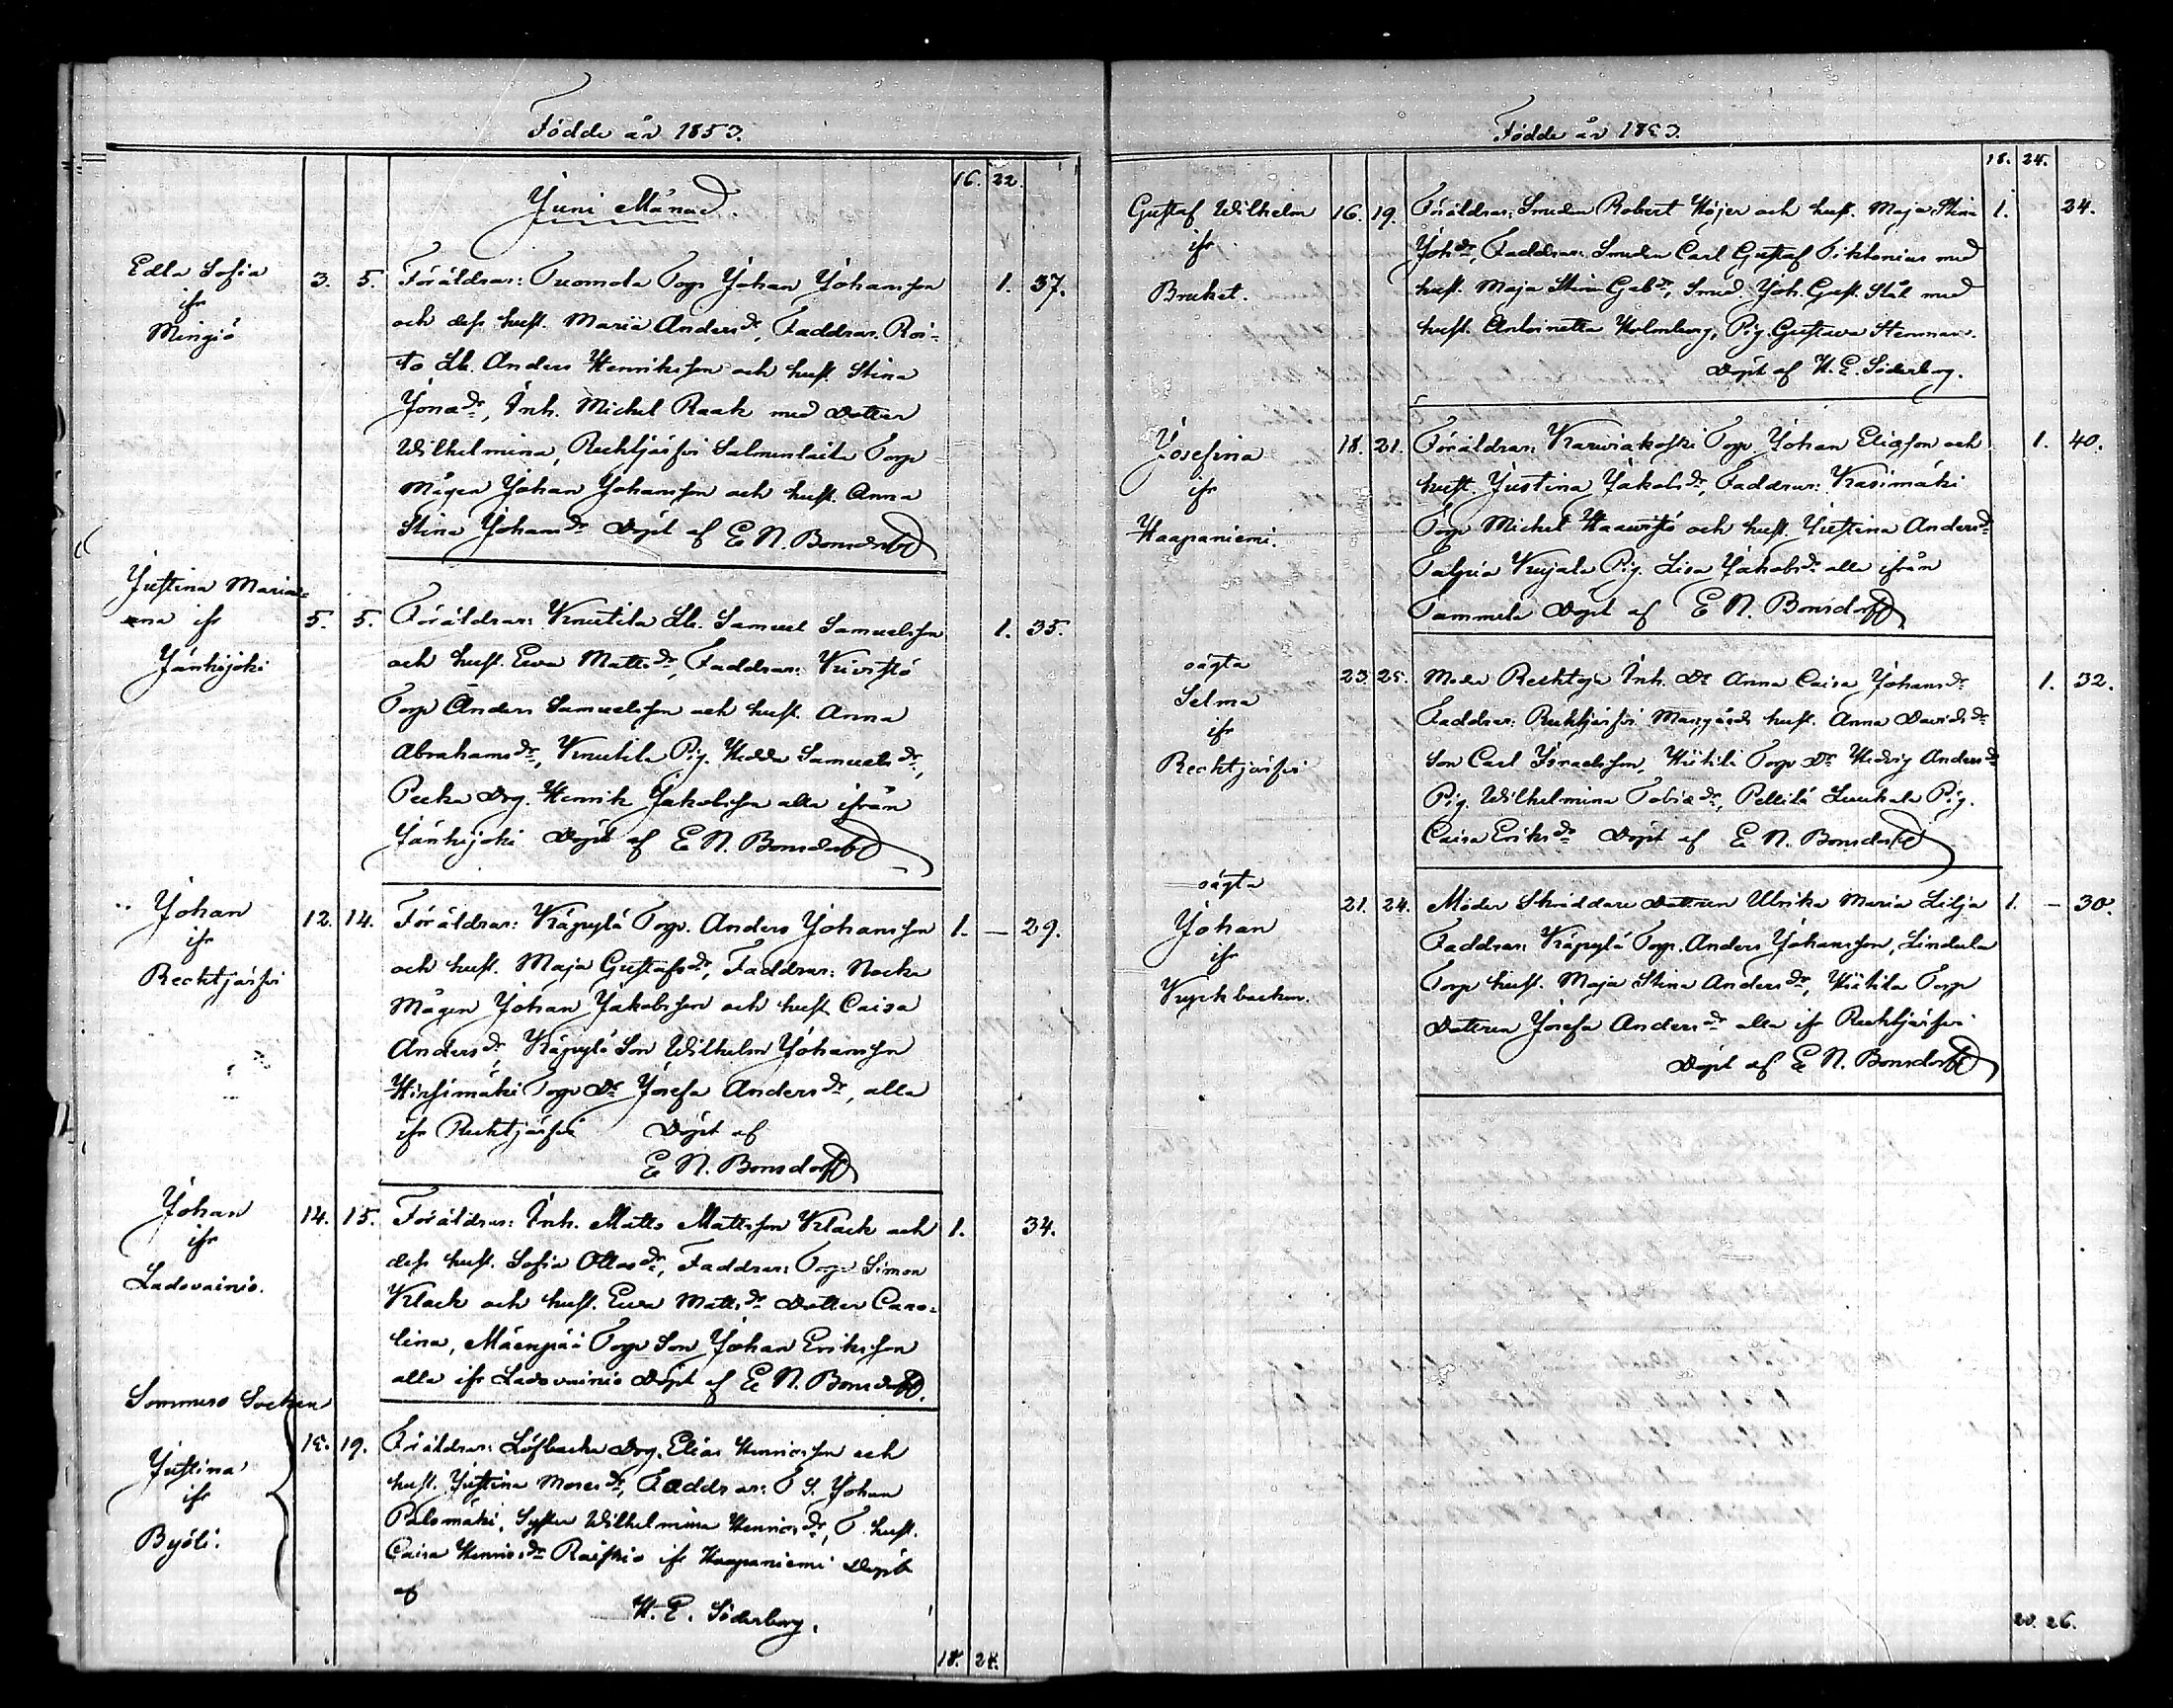 Födde år 1853.
16. 22.
Juni Månad.
Edla Sofia
ifr
Mingiö
3. 5. Föräldrar: Tuomola Torp. Johan Johansson 1. 37.
och dess hust. Maria Andersdr, Faddrar. Roi-
to Lb. Anders Henriksson och hust. Stina
Jonadr, Inh. Michel Raak med dotter
Wilhelmina, Rechtjärfvi Salmenlaita Torp
mågen Johan Johansson och hust. Anna
Stina Johansdr Döpt af E. N. Bonsdorff
Justina Maria-
na ifr
Jänhijoki
5. 5. Föräldrar: Knutila Lb. Samuel Samuelsson 1. 35.
och hust. Ewa Mattsdr, Faddrar: Kuivistö
Torp Anders Samuelsson och hust. Anna
Abrahamsdr, Knutila Pig. Hedda Samuelsdr,
Pecka Drg. Henrik Jakobsson alla ifrån
Jänhijoki Döpt af E. N. Bonsdorff
Johan
ifr
Rechtjärfvi
12. 14. Föräldrar: Käpylä Torp. Anders Johansson 1. – 29.
och hust. Maja Gustafsdr, Faddrar: Nocka
Mågen Johan Jakobsson och hust Caisa
Andersdr, Käpylä Son Wilhelm Johansson
Hirsimäki Torp Dr Josefa Andersdr, alla
ifr Rechtjärfvi Döpt af
E. N. Bonsdorff
Johan
ifr
Ladovainio.
14. 15. Föräldrar: Inh. Matts Mattsson Klack och 1. 34.
dess hust. Sofia Ollasdr, Faddrar: Torp Simon
Klack och hust. Ewa Mattsdr Dotter Caro-
lina, Mäenpää Torp Son Johan Eriksson
alla ifr Ladovainio Döpt af E. N. Bonsdorff.
Sommero Socken
Justina
ifr
Byöli.
19. Föräldrar: Löfbacka Drg. Elias Henricsson och
hust. Justina Mosesdr, Faddrar: T. S. Johan
Palomäki, Syster Wilhelmina Henricsdr, T. hust.
Caisa Henricsdr Raiskio ifr Haapaniemi Döpt
af
H. E. Söderborg.
18. 24.
Födde år 1853.
18. 24.
Gustaf Wilhelm
ifr
Bruket.
16. 19. Föräldrar: Smeden Robert Höjer och hust. Maja Stina 1. 24.
Johdr, Faddrar: Smeden Carl Gustaf Tiktonius med
hust. Maja Stina Gabdr, Smed Joh. Gust. Stål med
hust. Antoinetta Holmberg, Pig. Gustava Stenman.
Döpt af H. E. Söderborg.
Josefina
ifr
Haapaniemi.
18. 21. Föräldrar: Karviakoski Torp. Johan Eliasson och 1. 40.
hust. Justina Jakobsdr, Faddrar: Kasimäki
Torp Michel Haavisto och hust. Justina Andersdr
Talpia Kujala Pig. Lisa Jakobsdr alla ifrån
Tammela Döpt af E. N. Bonsdorff
oägta
Selma
ifr
Rechtjärfvi
23. 25. Moder Rechtoja Inh. Dr Anna Caisa Johansdr 1. 32.
Faddrar: Rechtjärfvi Margårds hust. Anna Davidsdr
Son Carl Israelsson, Hiitilä Torp Dr Hedvig Andersdr
Pig. Wilhelmina Tobiadr, Pellilä Luukala Pig.
Caisa Eriksdr Döpt af E. N. Bonsdorff
oägta
Johan
ifr
Kyrkbacken.
21. 24. Moder Skräddare Dotteren Ulrika Maria Lilja 1. – 30.
Faddrar: Käpylä Torp. Anders Johansson, Lindula
Torp hust. Maja Stina Andersdr, Hiitilä Torp
Dotteren Josefa Andersdr alla ifr Rechtjärfvi
Döpt af E. N. Bonsdorff
20. 26.